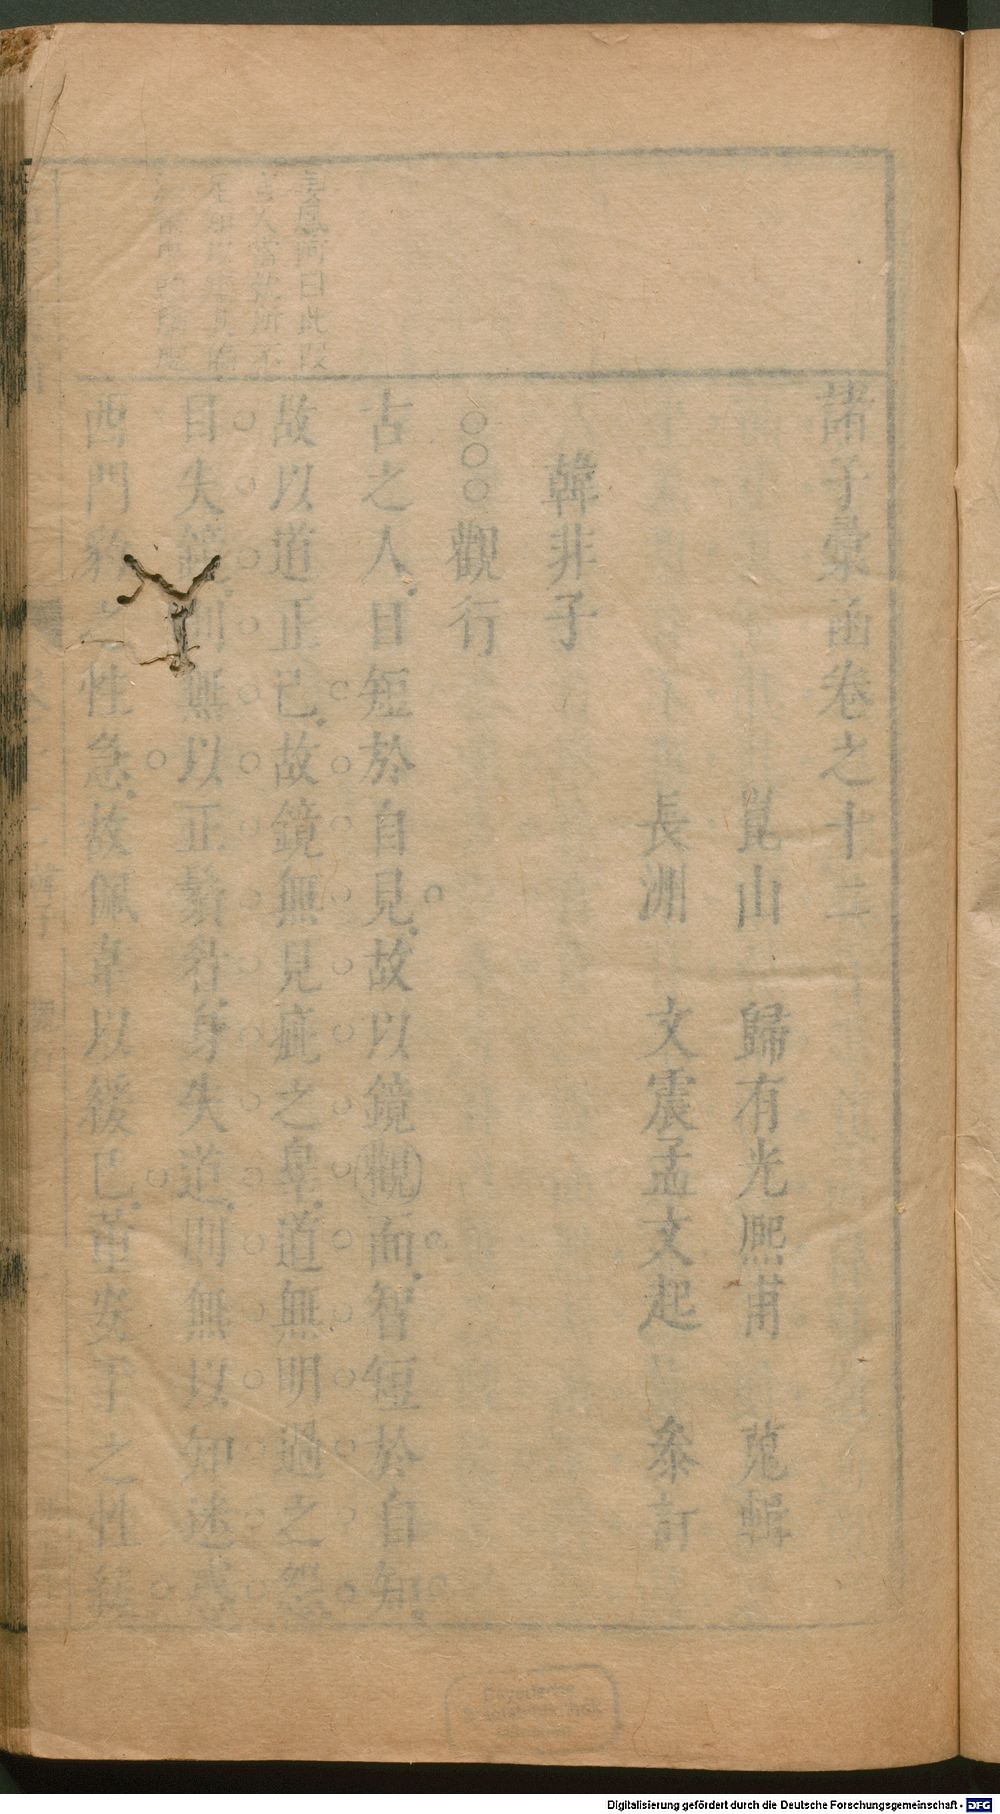 諸子彙函卷之十二
崑山 歸有光熙甫 蒐輯
長洲 文震孟文起 參訂
韓非子
○○○觀行
古之人目短於自見故以鏡觀面智短於自知
故以道正己故鏡無見疵之辠道無明過之怨
目失鏡則無以正鬚眉身失道則無以知迷惑
西門豹之性急故佩韋以緩己董安于之性緩
曰此段
Digitalisierung gefördert durch die Deutsche Forschungsgemeinschaft - DFG